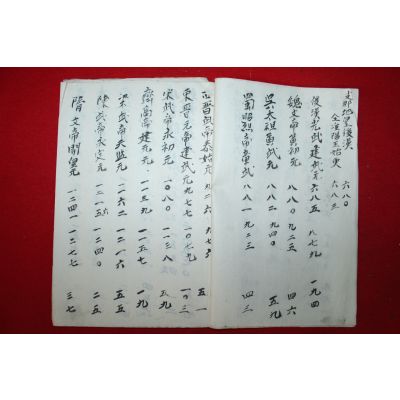 地皇後漢 六八〇
淮陽王始更 六八三
後漢光武建武元 六八五 八七九 一九四
魏文帝黃初元 八八〇 九二五 四六
吳太祖黃武元 八八二 九四〇 五九
蜀昭烈帝章武 八八一 九二三 四三
西晉武帝泰始元 九二六 九七六 五一
東晉元帝建武元 九七七 一〇七九 一〇三
宋武帝永初元 一〇八〇 一一三八 五九
齊高帝建元 一一三九 一一五七 一九
梁武帝天監元 一一六二 一二一六 五五
陳武帝永定元 一二一五 一二四〇 二五
隋文帝開皇元 一二四一 一二七七 三七